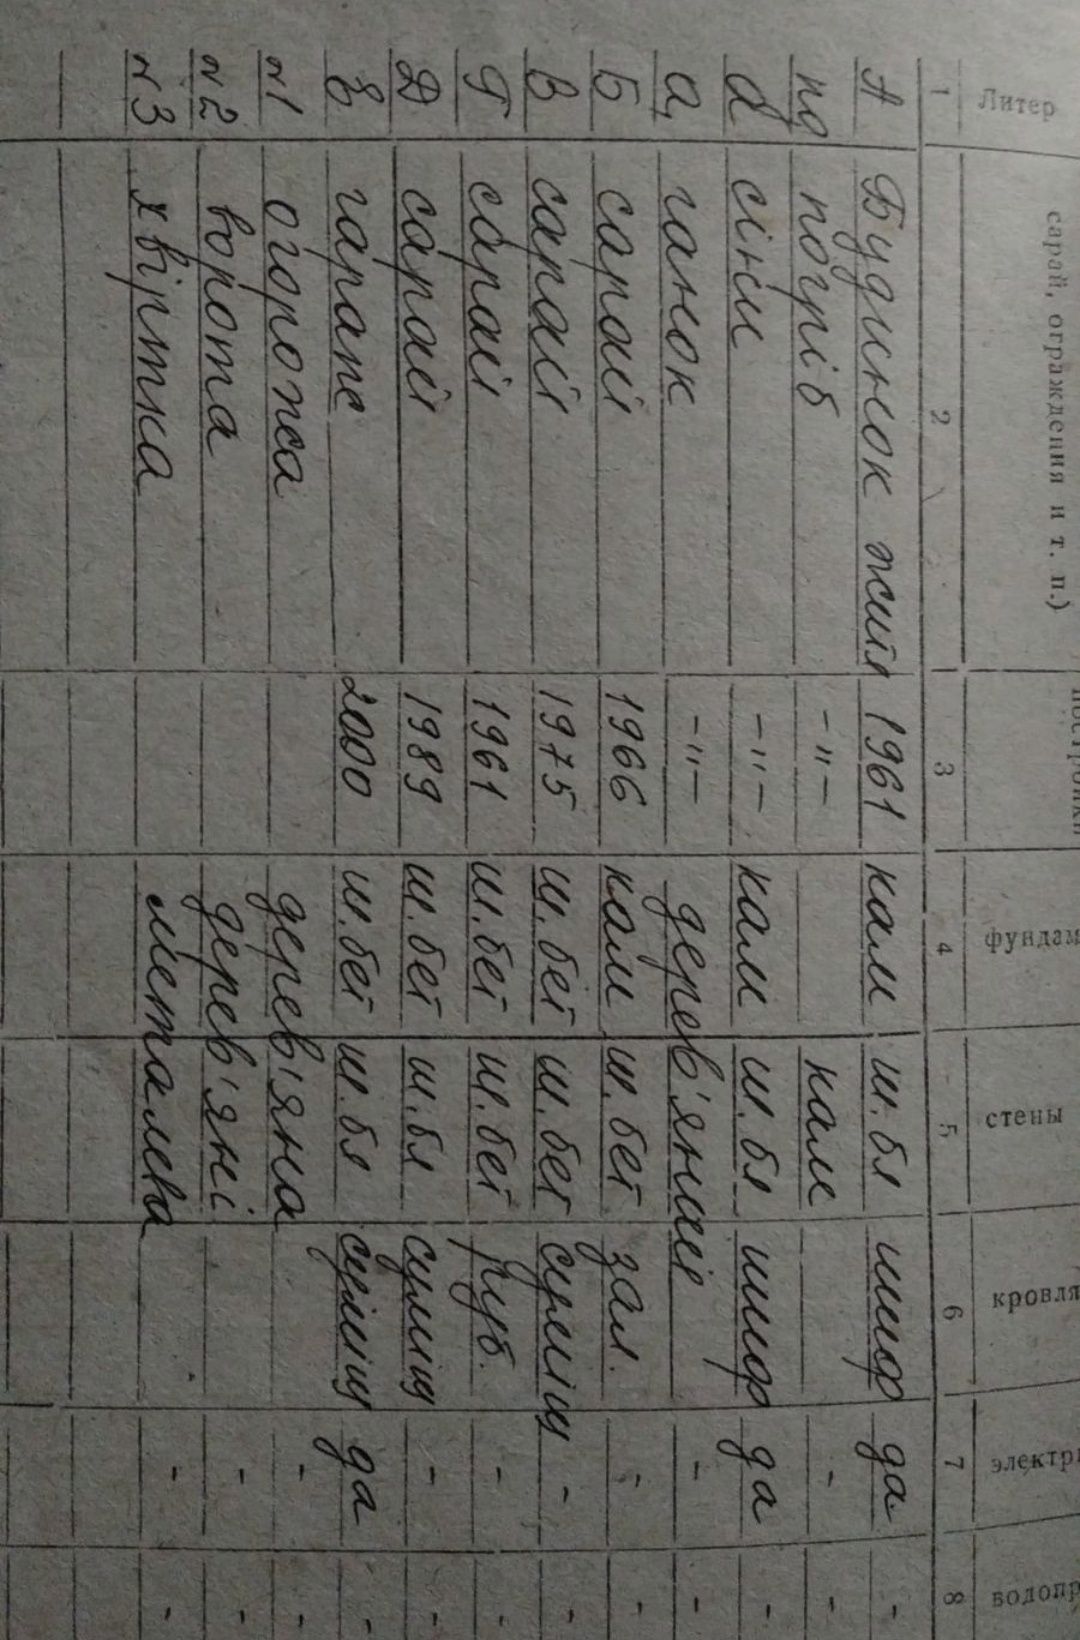 Литер сарай, ограждения и т. п.) постройки фундам стены кровля электр водопр
1 2 3 4 5 6 7 8
А Будинок житл 1961 кам ш.бл шифр да -
пд погріб -"- кам - -
а сіни -"- кам ш.бл шифр да -
а, ганок -"- дерев'яний - -
Б сарай 1966 кам ш.бет зал. - -
В сарай 1975 ш.бет ш.бет суміщ - -
Г сарай 1961 ш.бет ш.бет руб. - -
Д сарай 1989 ш.бет ш.бл суміщ - -
Е гараж 2000 ш.бет ш.бл суміщ да -
№1 огорожа дерев'яна - -
№2 ворота дерев'яні - -
№3 хвіртка металева - -